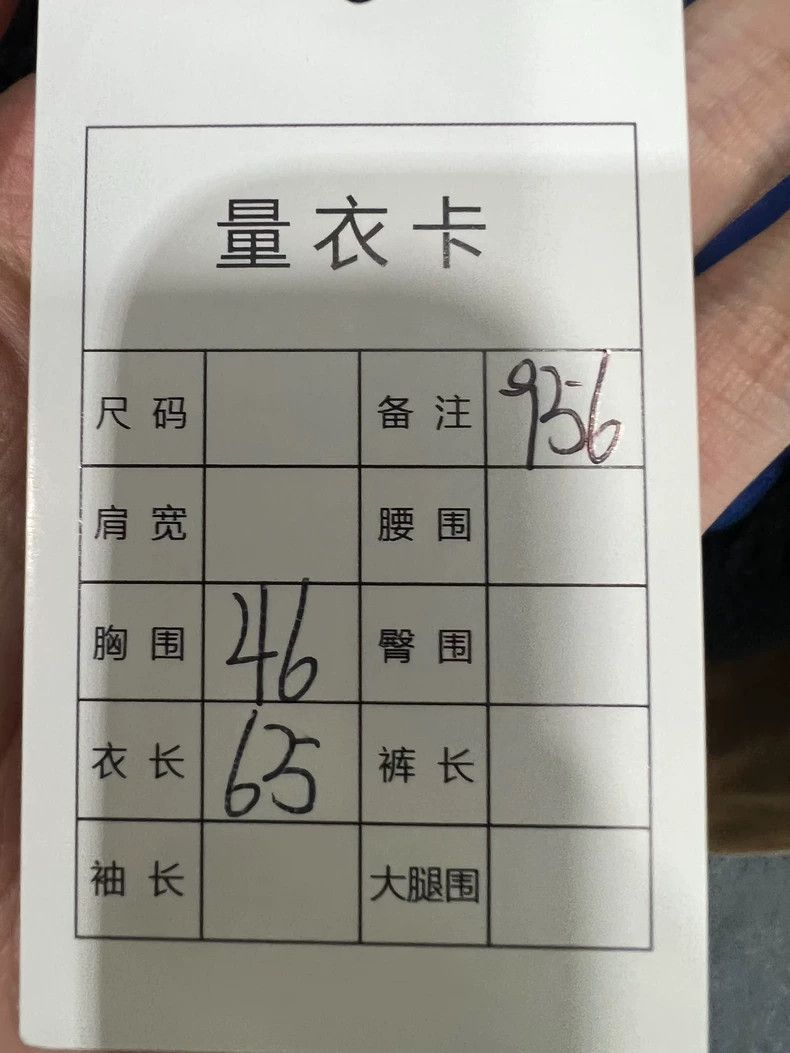 量衣卡
尺码 备注 956
肩宽 腰围
胸围 46 臀围
衣长 65 裤长
袖长 大腿围